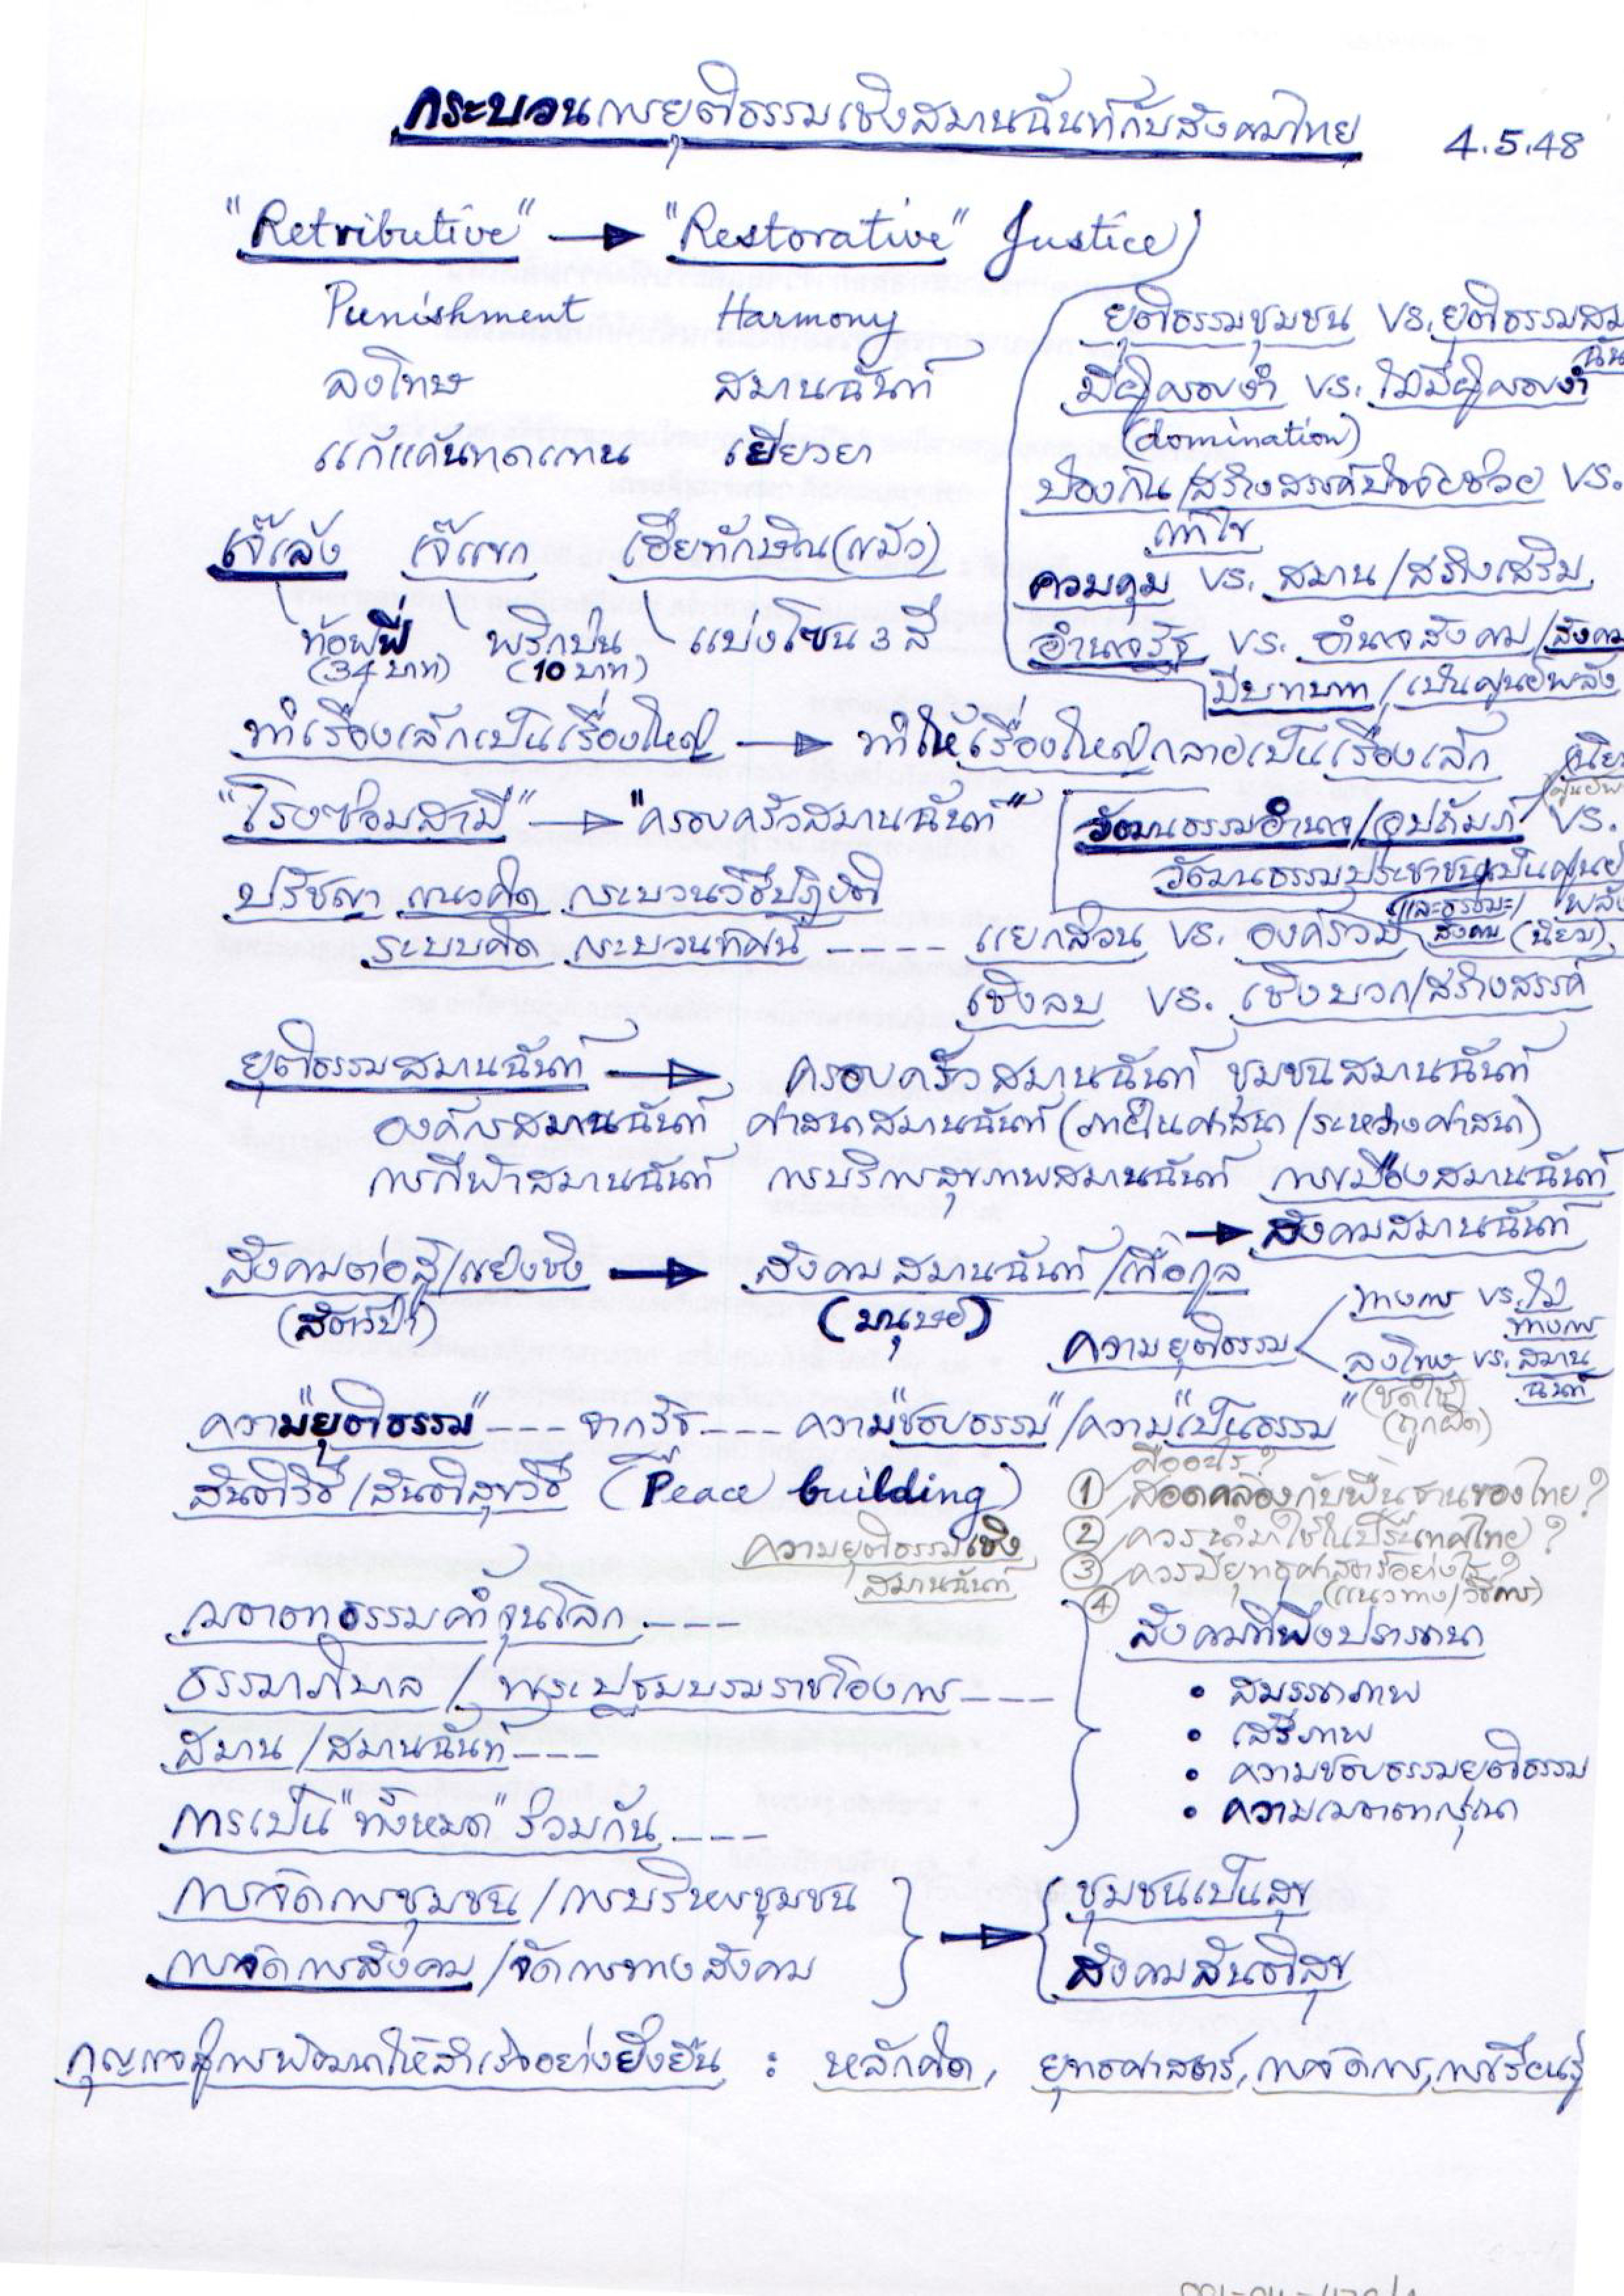 กระบวนการยุติธรรมเชิงสมานฉันท์กับสังคมไทย 4.5.48
"Retributive" → "Restorative" Justice
Punishment Harmony
ลงโทษ สมานฉันท์
แก้แค้นทดแทน เยียวยา
ยุติธรรมชุมชน vs. ยุติธรรมสมานฉัน
มีผู้ครอบงำ vs. ไม่มีผู้ครอบงำ
(domination)
ป้องกัน/สร้างสรรค์ปัจจัยช่วย vs.
แก้ไข
ควบคุม vs. สมาน/สร้างเสริม
อำนาจรัฐ vs. อำนาจสังคม/สังคม
มีบทบาท/เป็นศูนย์พลัง
เจ๊เล้ง เจ๊แขก เฮียทักษิณ(แม้ว)
ท้อฟฟี่ พริกป่น แบ่งโซน 3 สี
(34 บาท) (10 บาท)
ทำเรื่องเล็กเป็นเรื่องใหญ่ → ทำให้เรื่องใหญ่กลายเป็นเรื่องเล็ก
"โรงซ่อมสามี" → "ครอบครัวสมานฉันท์"
วัฒนธรรมอำนาจ/อุปถัมภ์ vs.
วัฒนธรรมประชาชนเป็นศูนย์
ปรัชญา แนวคิด กระบวนวิธีปฏิบัติ
ระบบคิด กระบวนทัศน์ ---- แยกส่วน vs. องค์รวม (และธรรมะ/สังคม (นิยม)
เชิงลบ vs. เชิงบวก/สร้างสรรค์
ยุติธรรมสมานฉันท์ → ครอบครัวสมานฉันท์ ชุมชนสมานฉันท์
องค์กรสมานฉันท์ ศาสนาสมานฉันท์ (ภายในศาสนา/ระหว่างศาสนา)
การกีฬาสมานฉันท์ การบริการสุขภาพสมานฉันท์ การเมืองสมานฉันท์
→ สังคมสมานฉันท์
สังคมต่อสู้/แย่งชิง → สังคมสมานฉันท์/เกื้อกูล
(สัตว์ป่า) (มนุษย์)
ความยุติธรรม < ทางการ vs. ไม่ทางการ
ลงโทษ vs. สมานฉันท์
(ชดใช้)
(ถูกผิด)
ความ"ยุติธรรม" --- จากรัฐ --- ความ"ชอบธรรม"/ความ"เป็นธรรม"
สันติวิธี/สันติสุขวิธี (Peace building)
ความยุติธรรมเชิง
สมานฉันท์
คืออะไร?
① สอดคล้องกับพื้นฐานของไทย?
② ควรนำมาใช้ในประเทศไทย?
③ ควรมียุทธศาสตร์อย่างไร?
④ (แนวทาง/วิธีการ)
เมตตาธรรมค้ำจุนโลก ---
ธรรมาภิบาล / พระปฐมบรมราชโองการ ---
สมาน/สมานฉันท์ ---
การเป็น"ทั้งหมด"ร่วมกัน ---
สังคมที่พึงปรารถนา
• สมรรถภาพ
• เสรีภาพ
• ความชอบธรรมยุติธรรม
• ความเมตตากรุณา
การจัดการชุมชน/การบริหารชุมชน
การจัดการสังคม/จัดการทางสังคม
→ ชุมชนเป็นสุข
สังคมสันติสุข
กุญแจสู่การพัฒนาให้สำเร็จอย่างยั่งยืน : หลักคิด, ยุทธศาสตร์, การจัดการ, การเรียนรู้